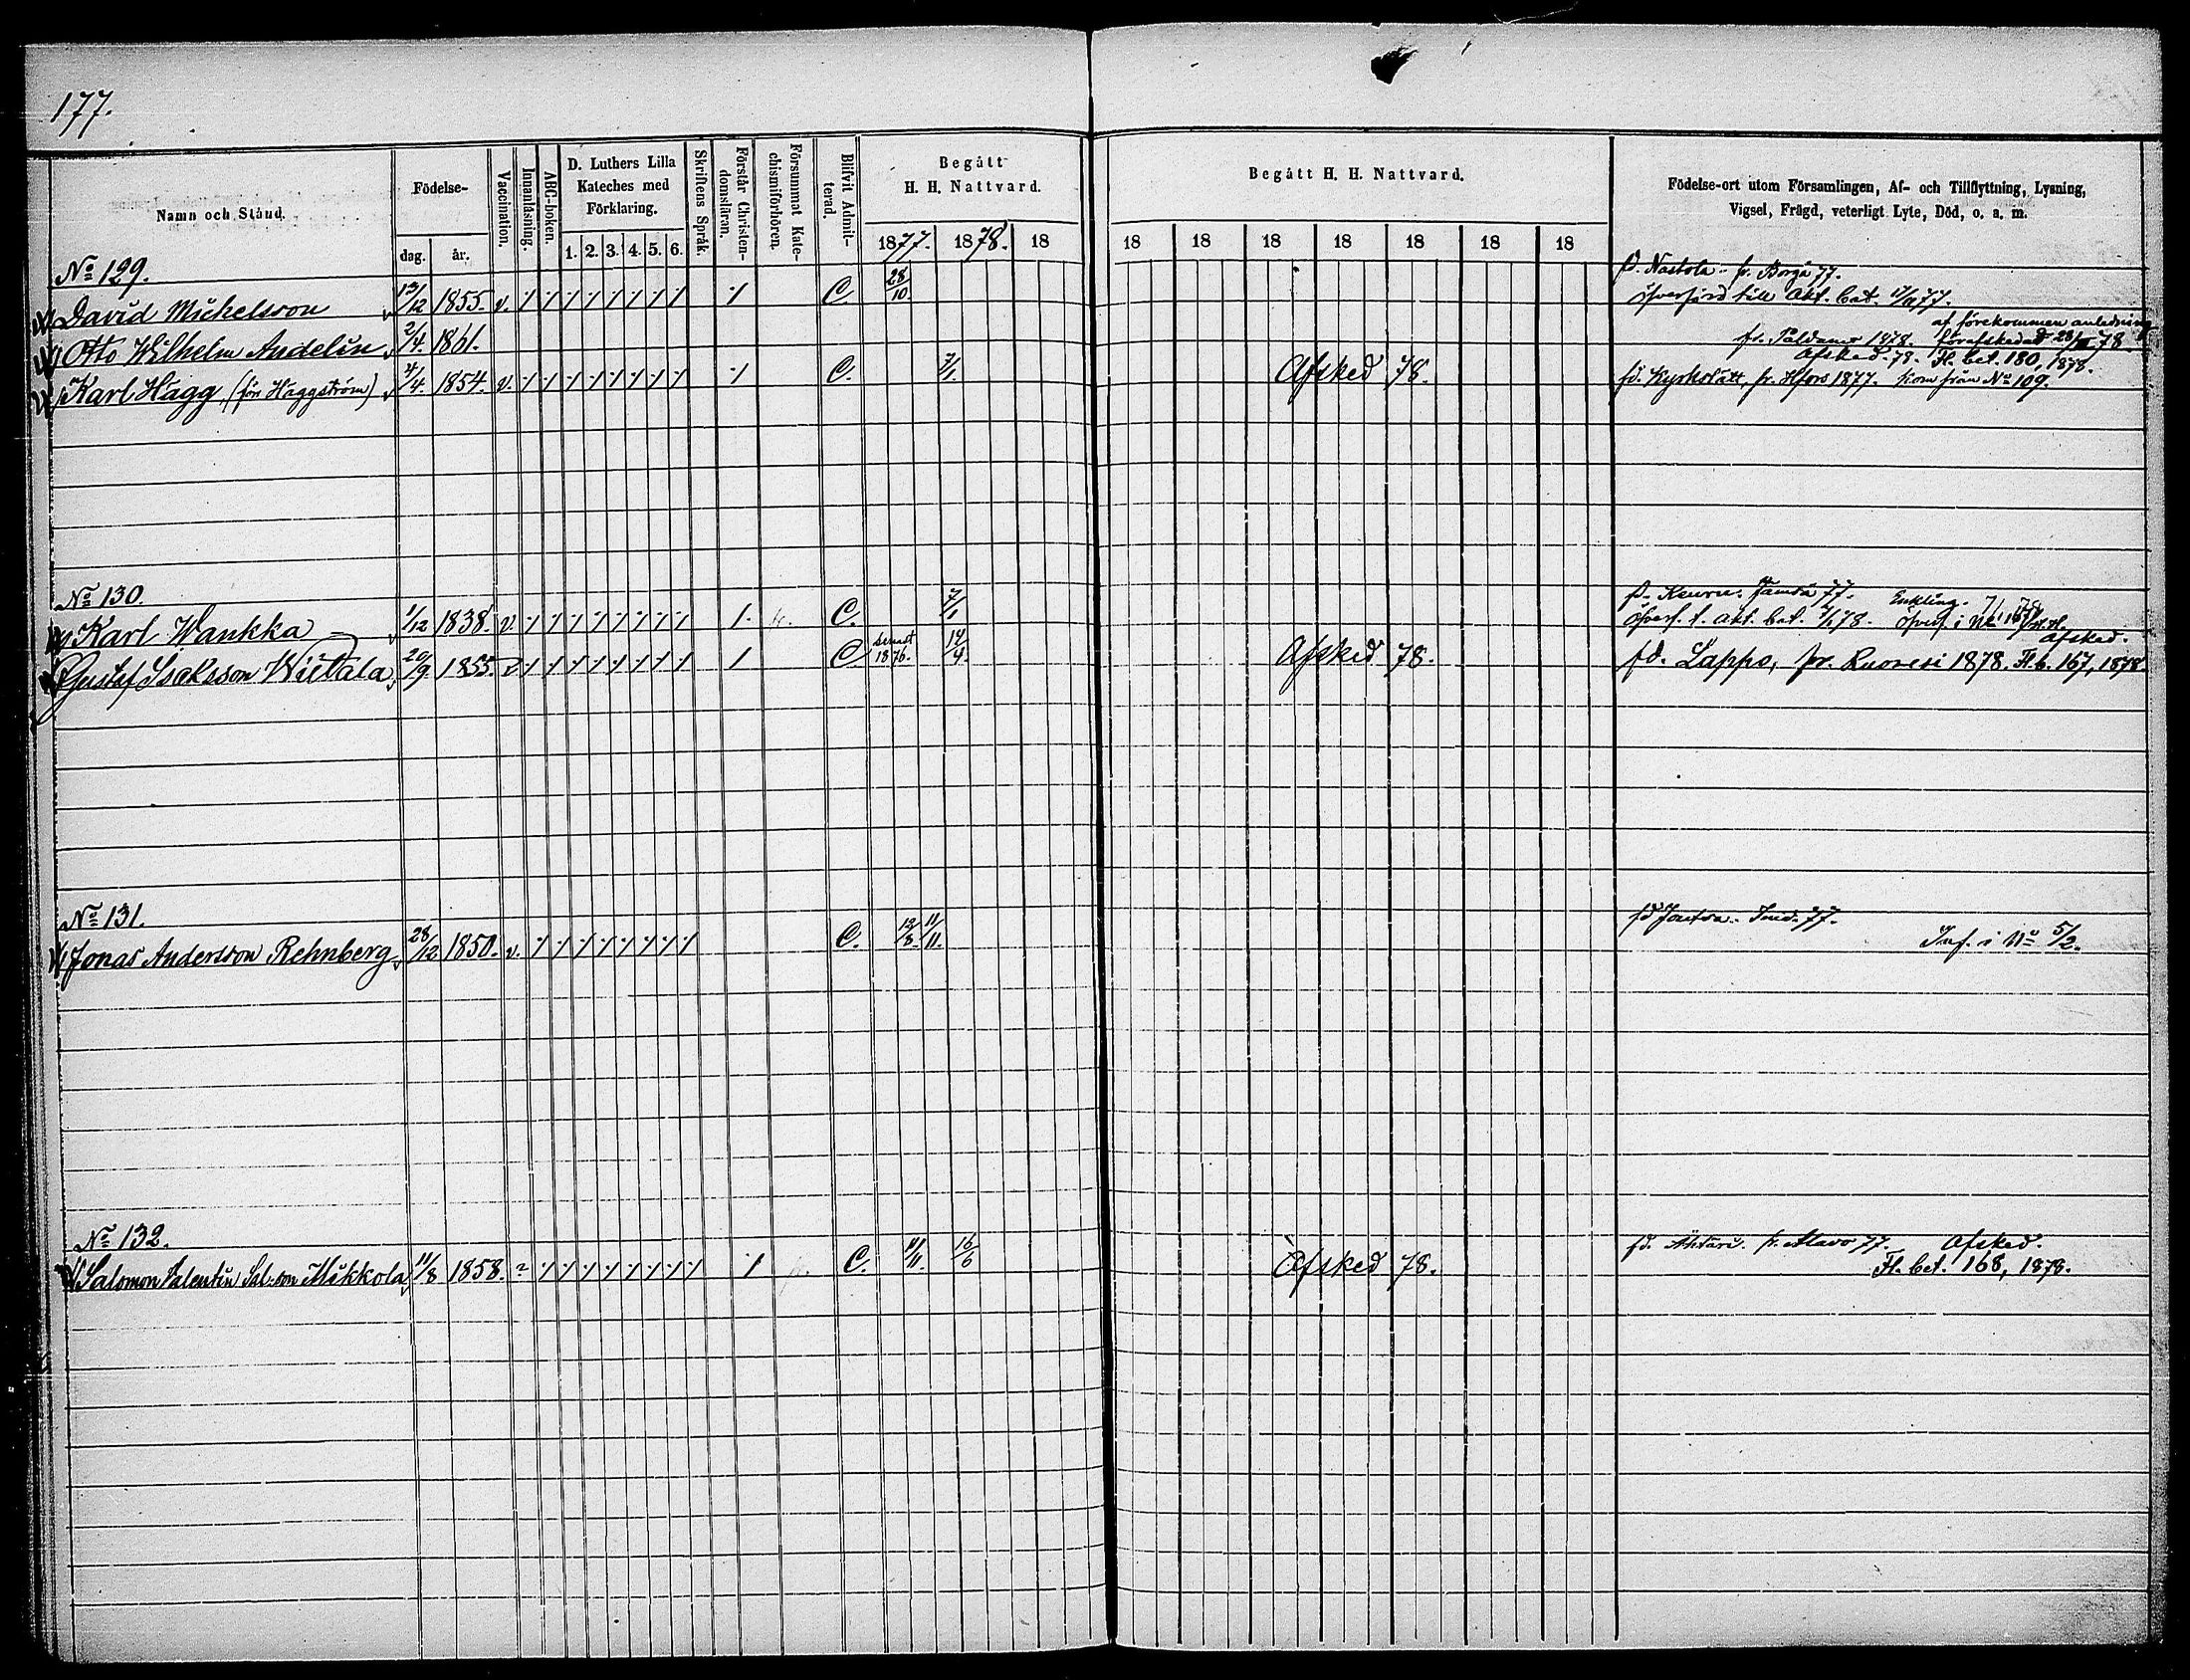 177.
Namn och Stånd.
Födelse-
dag. år.
Vaccination.
Innanläsning.
ABC-boken.
D. Luthers Lilla
Kateches med
Förklaring.
1. 2. 3. 4. 5. 6.
Skriftens Språk.
Förstår Christen-
domsläran.
Försummat Kate-
chismiförhören.
Blifvit Admit-
terad.
Begått
H. H. Nattvard.
1877. 1878. 18
Begått H. H. Nattvard.
18 18 18 18 18 18 18
Födelse-ort utom Församlingen, Af- och Tillflyttning, Lysning,
Vigsel, Frägd, veterligt Lyte, Död, o. a. m.
No 129.
David Michelsson 13/12 1855. v. C 28/10. f. Nastola. fr. Borgå 77.
öfverförd till Akt. bat. 77.
Otto Wilhelm Andelin 2/4. 1861. fr. Paldamo 1878. af förekommen anledning
förafskedad 28/III 78.
Karl Hägg, (för Häggström) 4/4. 1854. v. C. 7/1. Afsked 78. Afsked. 78. Fl. bet. 180, 1878.
fd. Kyrkslätt, fr. Hfors 1877. kom från No 109.
No 130.
Karl Wankka 1/12 1838. v. C. 7/1 f. Keuru. Jämsä 77. Enkling.
öfverf. t. akt. bat. 78.
Gustaf Isaksson Wiitala 20/9. 1855. v. C 1876. 14/4. Afsked 78. Afsked.
fd. Lappo, fr. Ruovesi 1878. Fl. b. 167, 1878
No 131.
Jonas Andersson Rehnberg 28/12 1850. v. C. 12/8. 11/11. 77.
Inf. i No 5/2.
No 132.
Salomon Salentin Sal:son Mikkola 11/8 1858. ? C. 11/11. 16/6 Afsked 78. fd. Ähtäri. fr. Alavo 77. Afsked.
Fl. bet. 168, 1878.